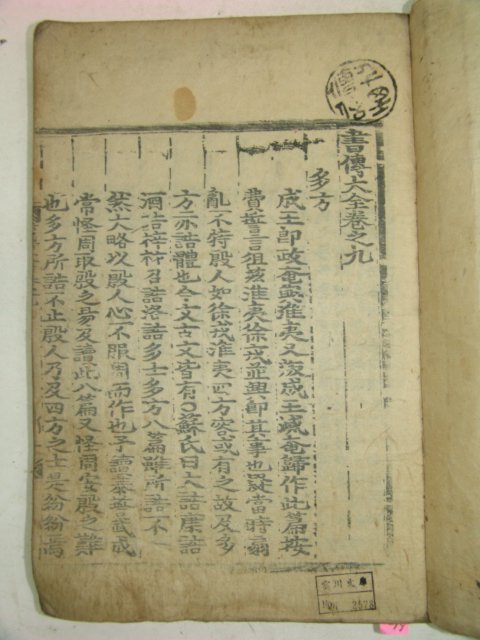 書傳大全卷之九
多方
成王卽政奄與淮夷又叛成王滅奄歸作此篇按
費誓言徂玆淮夷徐戎並興卽其事也疑當時扇
亂不特殷人如徐戎淮夷四方容或有之故及多
方亦誥體也今文古文皆有○蘇氏曰大誥康誥
酒誥梓材召誥洛誥多士多方八篇雖所誥不一
然大略以殷人心不服周而作也予讀泰誓武成
常怪周取殷之易及讀此八篇又怪周安殷之難
也多方所誥不止殷人乃及四方之士是紛紛焉
2528